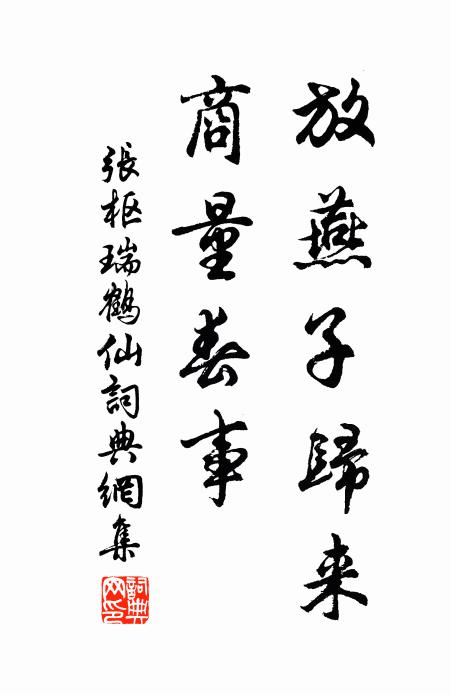 放燕子歸来
商量春事
張枢瑞鶴仙詞典網集
詞典
网印